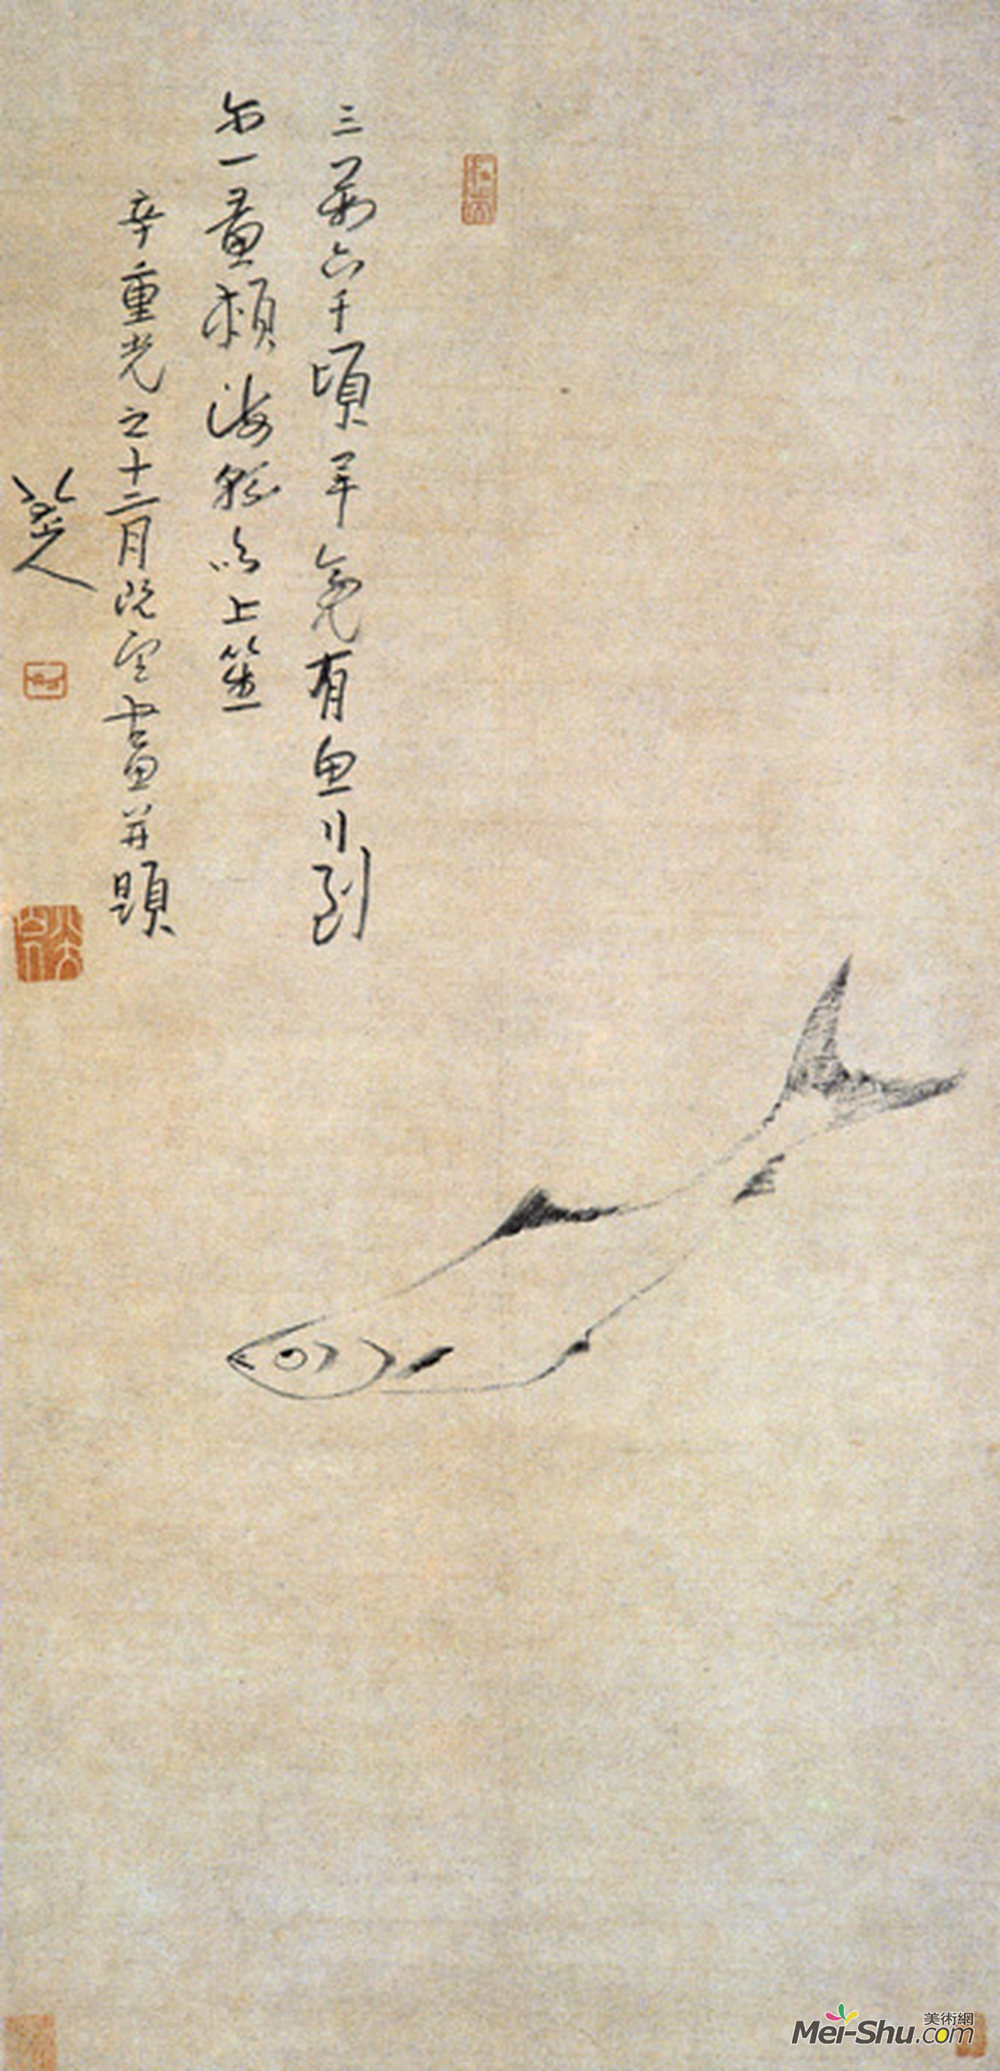 三萬六千頃畢竟有魚行到
尔一黃頰海綿吹上笙
辛重光之十二月既望畫并題
八大山人
美術網
Mei-Shu.com